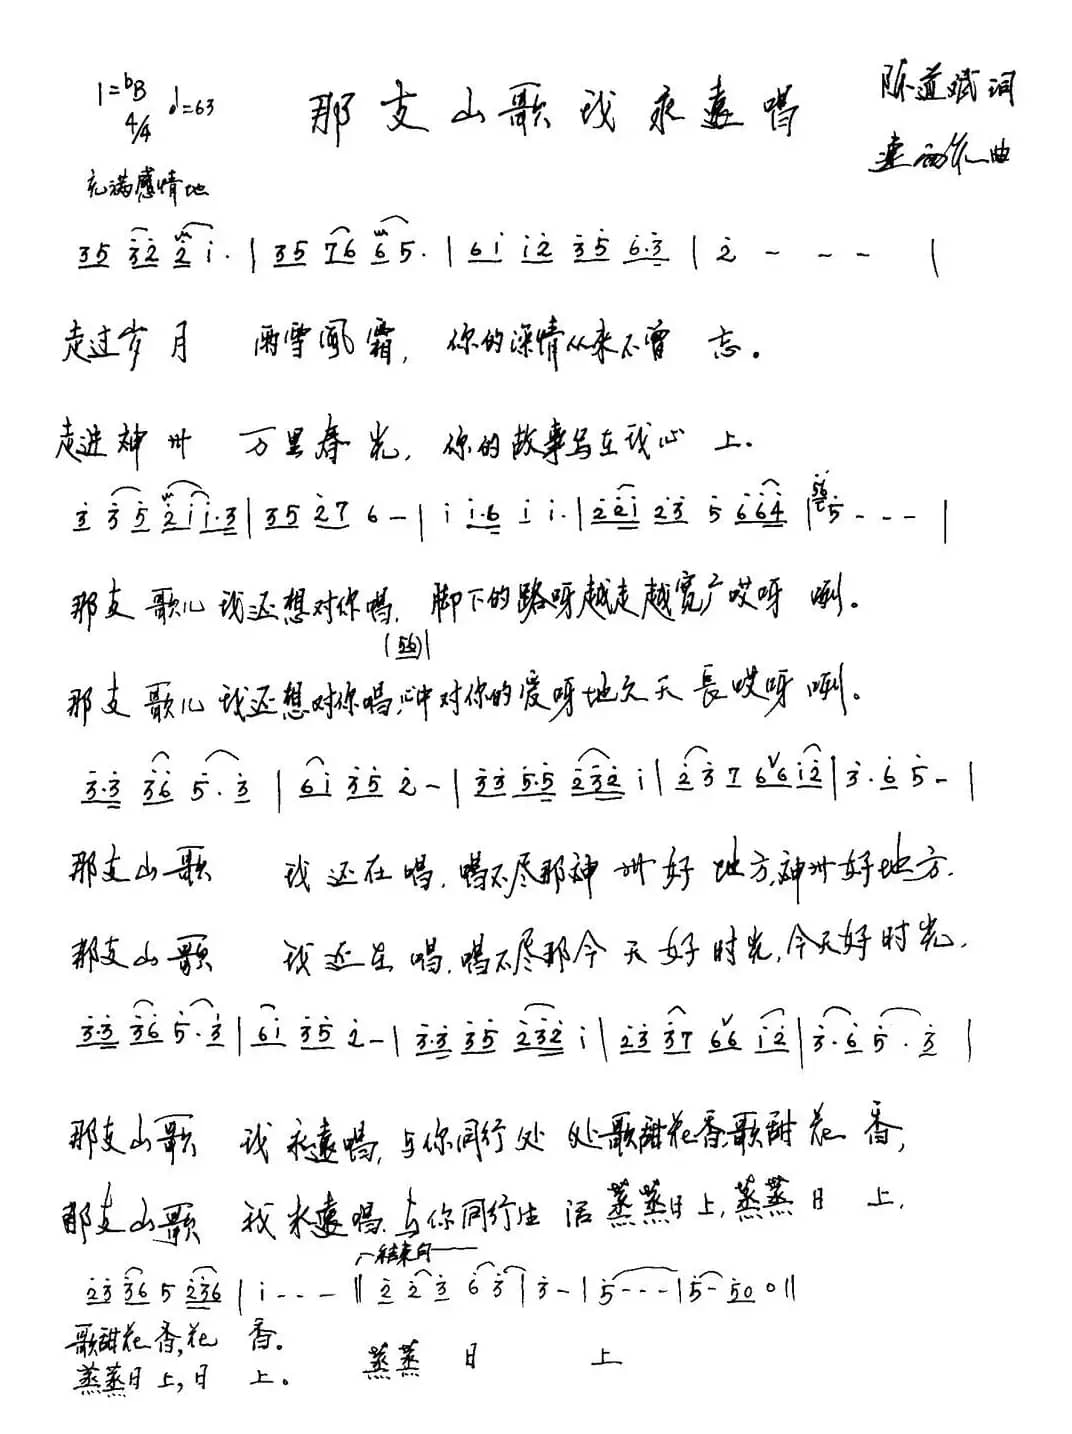 1=bB 4/4 ♩=63
那支山歌我永遠唱
陈道斌 词
曲
充满感情地
35 32 2 1· | 35 76 6 5· | 61 12 35 6·3 | 2 - - - |
走过岁月 雨雪風霜，你的深情从来不曾 忘。
走进神州 万里春光，你的故事写在我心 上。
3 35 211·3 | 35 27 6 - | 1 1·6 1 1· | 221 23 5 664 | 56 5 - - - |
那支歌儿我还想对你唱，脚下的路呀越走越宽广哎呀 唎。
(56)|
那支歌儿我还想对你唱，心中对你的爱呀地久天長哎呀 唎。
3·3 36 5·3 | 61 35 2 - | 33 5·5 232 1 | 23 7 66 12 | 3·6 5 - |
那支山歌 我还在唱，唱不尽那神州好 地方，神州好地方。
那支山歌 我还在唱，唱不尽那今天好时光，今天好时光。
3·3 36 5·3 | 61 35 2 - | 3·3 35 232 1 | 23 37 66 12 | 3·6 5·3 |
那支山歌 我永遠唱，与你同行处 处歌甜花香，歌甜花 香，
那支山歌 我永遠唱，与你同行生 活蒸蒸日上，蒸蒸日 上，
结束句
23 36 5 236 | 1 - - - || 2 23 63 | 3 - | 5 - - - | 5 - 50 0 ||
歌甜花香，花 香。
蒸蒸日上，日 上。 蒸蒸 日 上